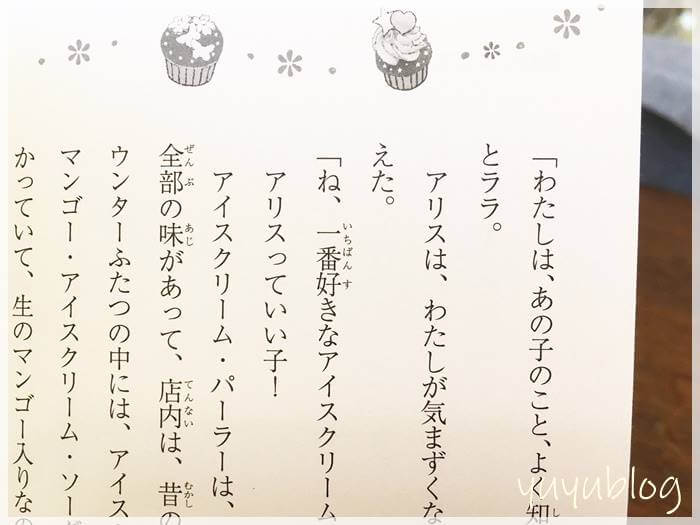 「わたしは、あの子のこと、よく知
とララ。
アリスは、わたしが気まずくな
えた。
「ね、一番好きなアイスクリーム
アリスっていい子！
アイスクリーム・パーラーは、
全部の味があって、店内は、昔の
ウンターふたつの中には、アイス
マンゴー・アイスクリーム・ソー
かっていて、生のマンゴー入りな
yuyublog